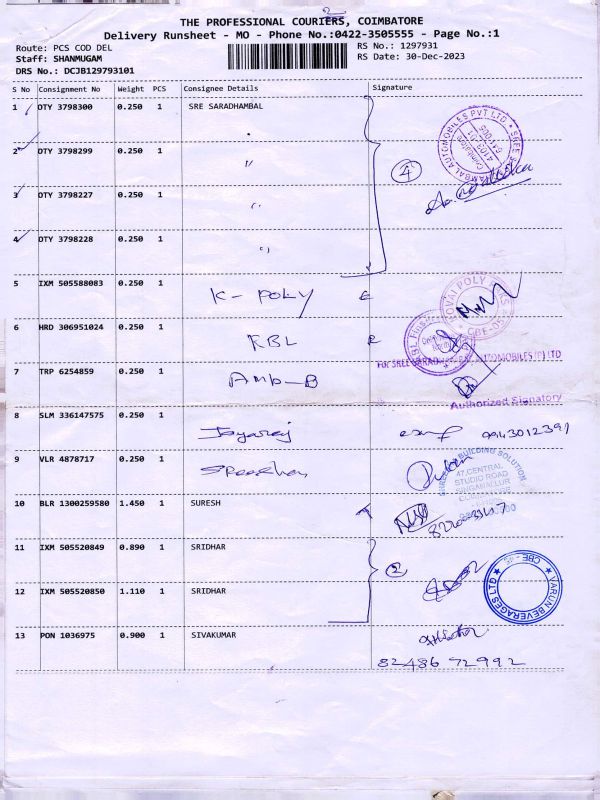 THE PROFESSIONAL COURIERS, COIMBATORE
Delivery Runsheet - MO - Phone No.:0422-3505555 - Page No.:1
Route: PCS COD DEL
RS No.: 1297931
Staff: SHANMUGAM
RS Date: 30-Dec-2023
DRS No.: DCJB129793101
S No Consignment No Weight PCS Consignee Details Signature
1 OTY 3798300 0.250 1 SRE SARADHAMBAL
2 OTY 3798299 0.250 1 "
3 OTY 3798227 0.250 1 "
4 OTY 3798228 0.250 1 "
4
5 IXM 505588083 0.250 1 K-POLY
6 HRD 306951024 0.250 1 KBL
AUTOMOBILES (P) LTD
7 TRP 6254859 0.250 1 AMb-B
Authorized Signatory
8 SLM 336147575 0.250 1 Jayaraj 9943012391
9 VLR 4878717 0.250 1
BUILDING SOLUTION
47, CENTRAL
STUDIO ROAD
SINGANALLUR
10 BLR 1300259580 1.450 1 SURESH
11 IXM 505520849 0.890 1 SRIDHAR
2
12 IXM 505520850 1.110 1 SRIDHAR
VARUN BEVERAGES LTD
CBE - 45
13 PON 1036975 0.900 1 SIVAKUMAR
82486 72992